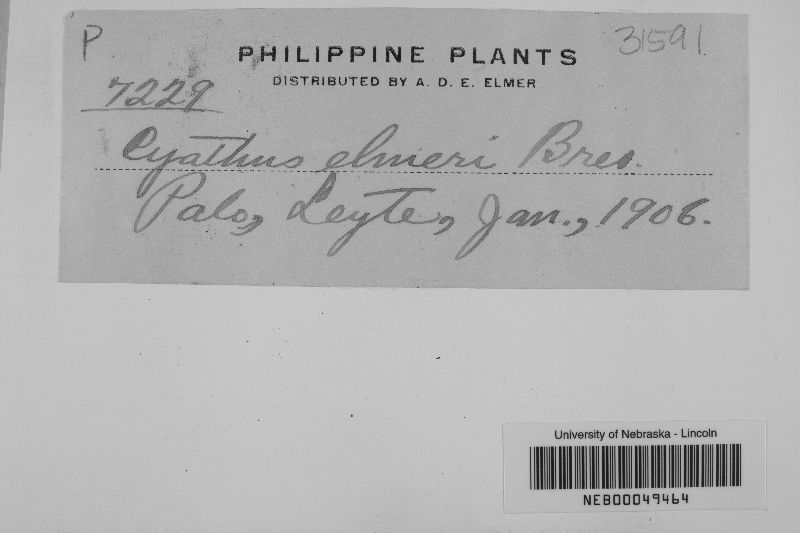 P
31591
PHILIPPINE PLANTS
DISTRIBUTED BY A. D. E. ELMER
7229
Cyathus elmeri Bres.
Palo, Leyte, Jan., 1906.
University of Nebraska - Lincoln
NEB00049464